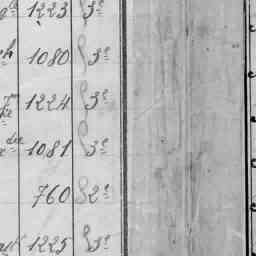 1223 3e
1080 3e
1224 3e
1081 3e
760 2e
1225 3e